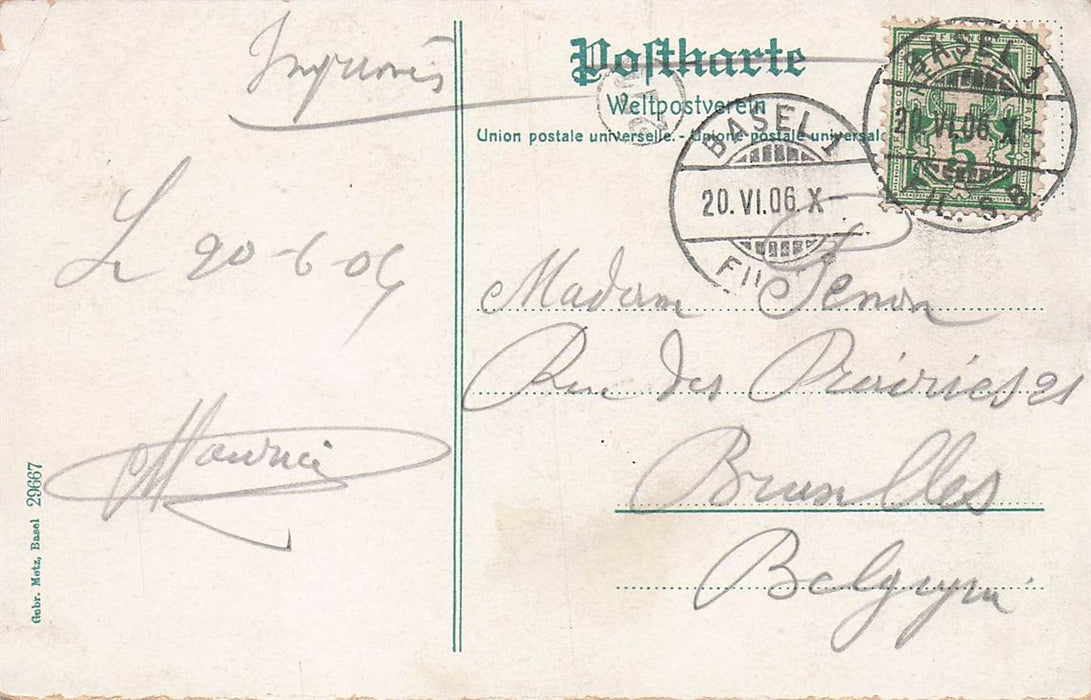 Imprimés
Postkarte
Weltpostverein
Union postale universelle. - Unione postale universale
BASEL 1
20.VI.06.X-
FIL
BASEL 1
20.VI.06.X-
FIL. S. B.
5
Le 20-6-06
Madam
Rue des 21
Bruxelles
Belgique
Maurice
Gebr. Metz, Basel 29667